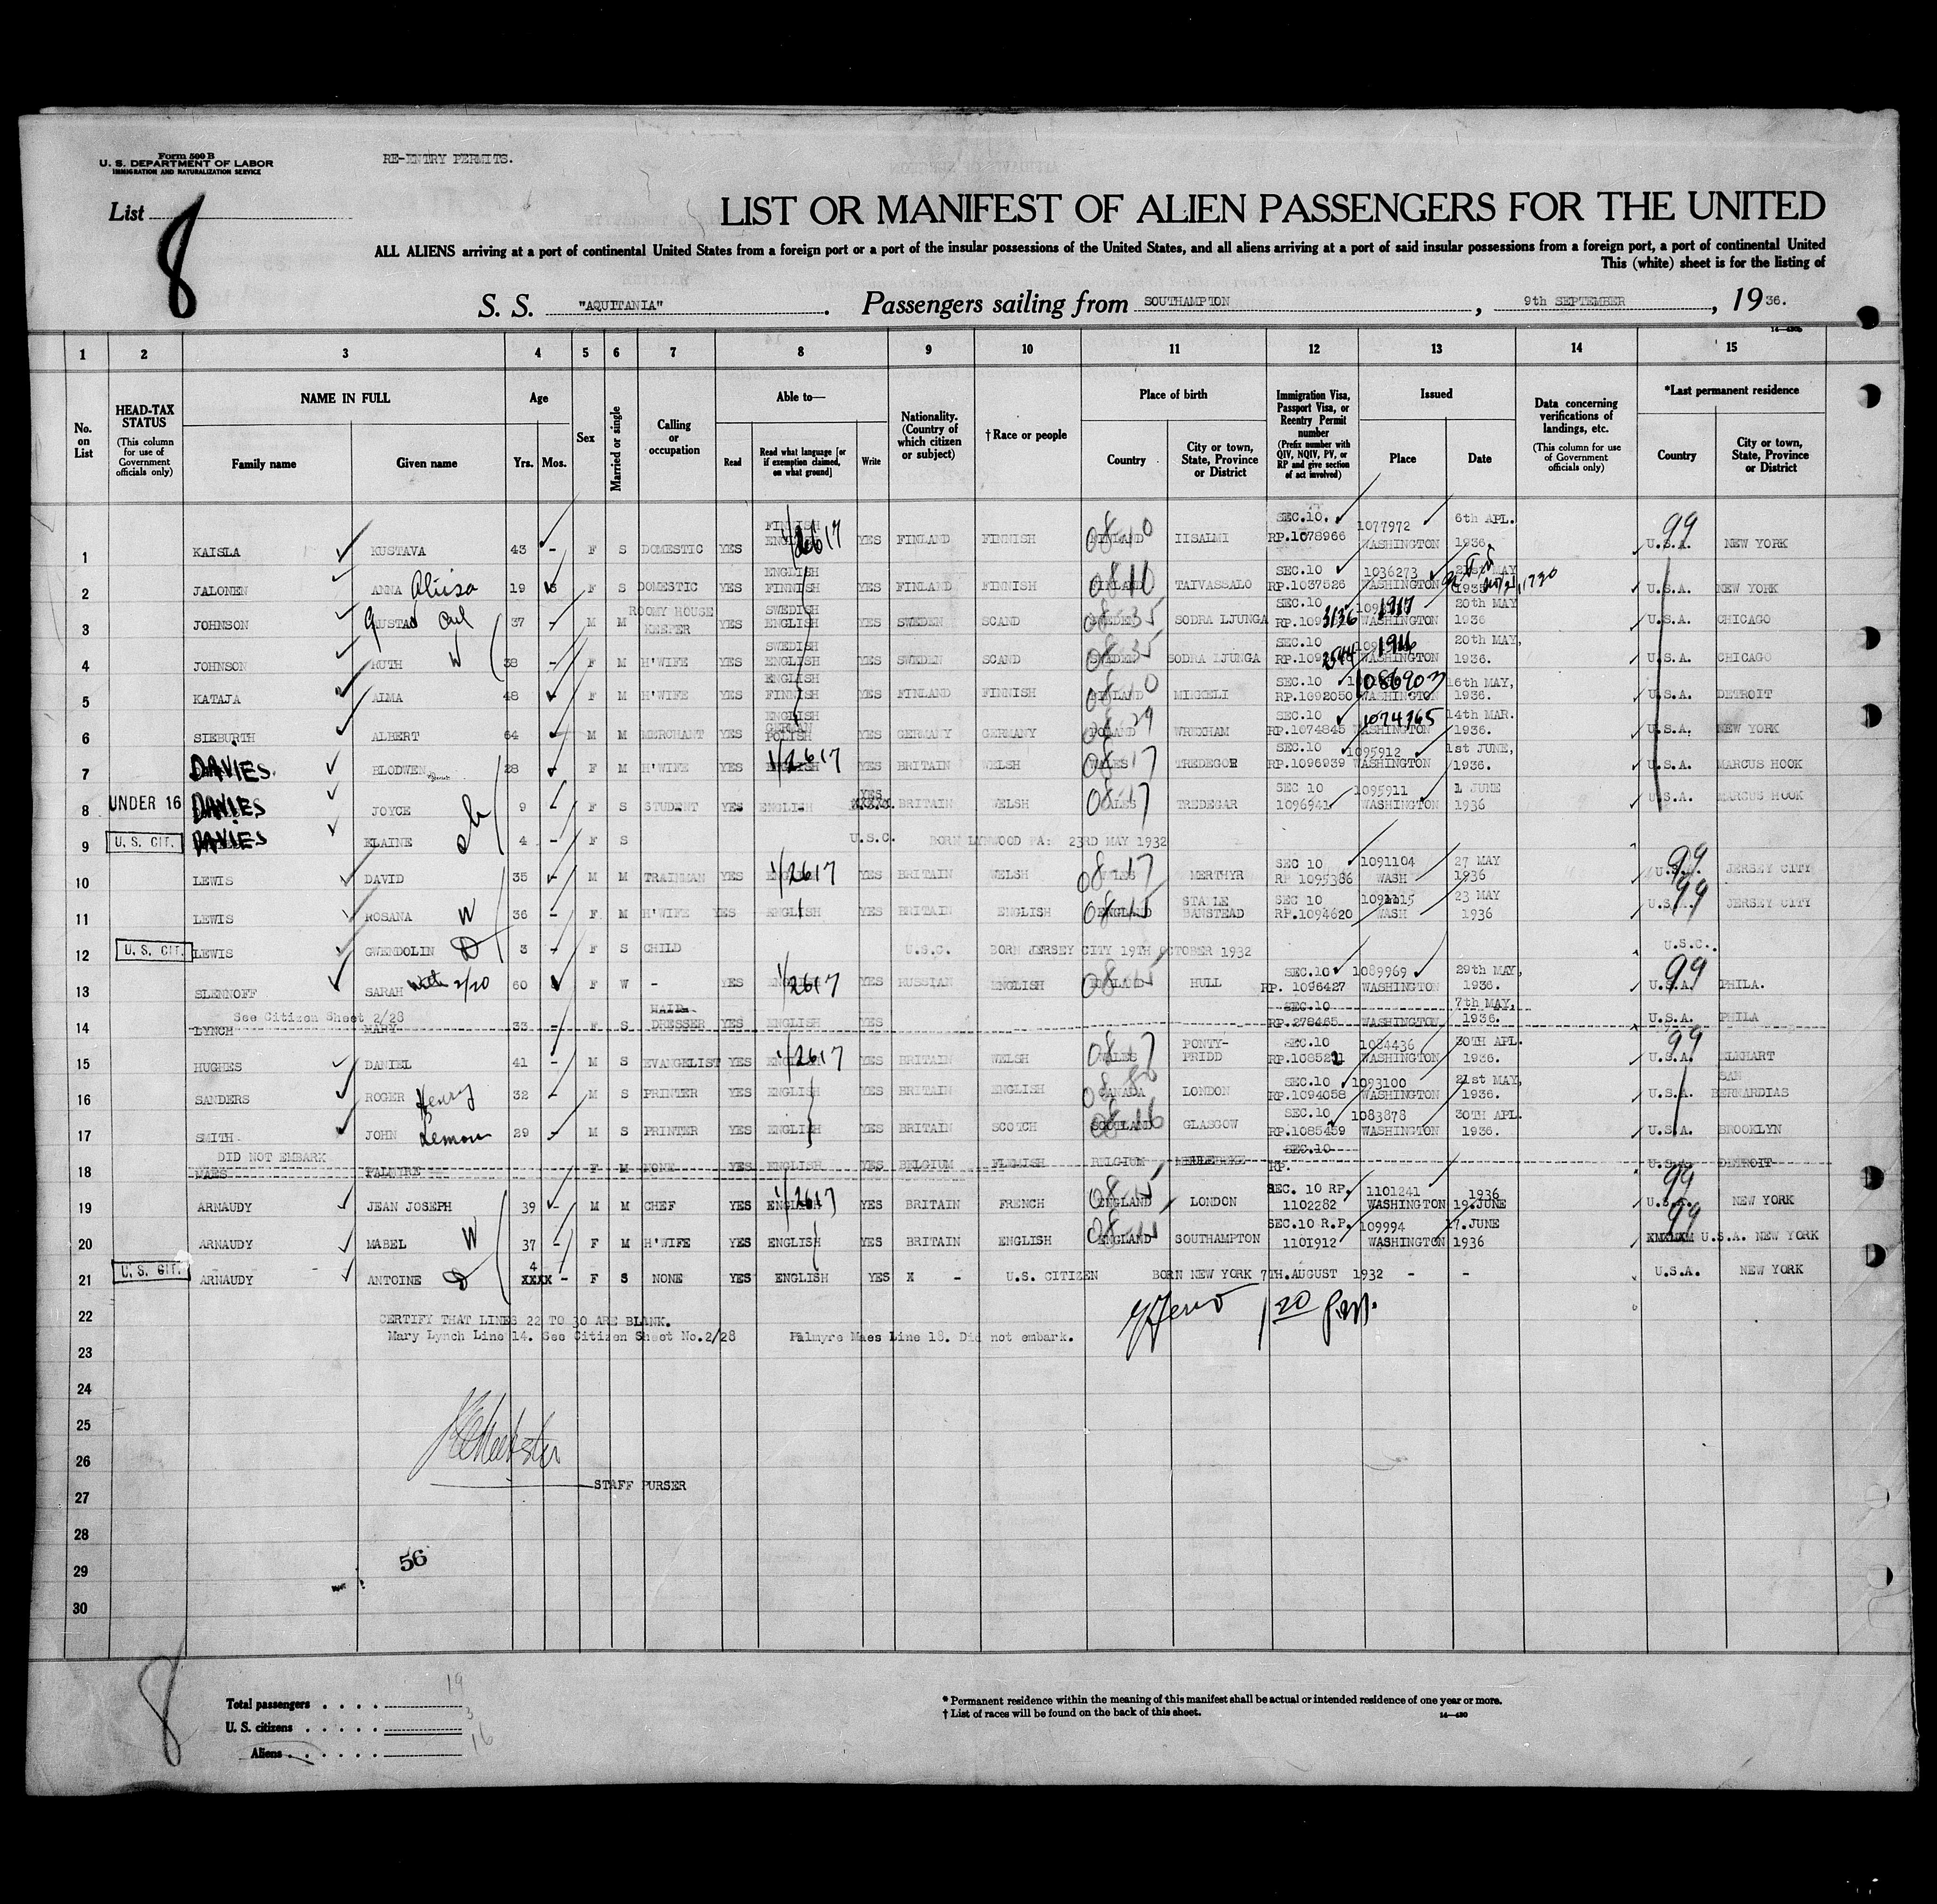 Form 500 B
U. S. DEPARTMENT OF LABOR
IMMIGRATION AND NATURALIZATION SERVICE
RE-ENTRY PERMITS.
List 8
LIST OR MANIFEST OF ALIEN PASSENGERS FOR THE UNITED
ALL ALIENS arriving at a port of continental United States from a foreign port or a port of the insular possessions of the United States, and all aliens arriving at a port of said insular possessions from a foreign port, a port of continental United
This (white) sheet is for the listing of
S. S. "AQUITANIA". Passengers sailing from SOUTHAMPTON, 9th SEPTEMBER, 1936.
1 2 3 4 5 6 7 8 9 10 11 12 13 14 15
No. on List
HEAD-TAX STATUS (This column for use of Government officials only)
NAME IN FULL
Family name
Given name
Age
Yrs. Mos.
Sex
Married or single
Calling or occupation
Able to—
Read
Read what language [or if exemption claimed, on what ground]
Write
Nationality. (Country of which citizen or subject)
† Race or people
Place of birth
Country
City or town, State, Province or District
Immigration Visa, Passport Visa, or Reentry Permit number (Prefix number with QIV, NQIV, PV, or RP and give section of act involved)
Issued
Place
Date
Data concerning verifications of landings, etc. (This column for use of Government officials only)
*Last permanent residence
Country
City or town, State, Province or District
1 KAISLA KUSTAVA 43 - F S DOMESTIC YES FINNISH ENGLISH 1/2617 YES FINLAND FINNISH FINLAND 0810 IISALMI SEC.10. RP.1078966 1077972 WASHINGTON 6th APL. 1936. 99 U.S.A. NEW YORK
2 JALONEN ANNA 19 F S DOMESTIC YES ENGLISH FINNISH YES FINLAND FINNISH FINLAND 0810 TAIVASSALO SEC.10 RP.1037526 1036273 WASHINGTON 21st MAY 1935 U.S.A. NEW YORK
3 JOHNSON GUSTAV Carl 37 - M M ROOMY HOUSE KEEPER YES SWEDISH ENGLISH YES SWEDEN SCAND SWEDEN 0835 SODRA LJUNGA SEC.10 RP.1093136 1917 WASHINGTON 20th MAY 1936 U.S.A. CHICAGO
4 JOHNSON RUTH W 38 - F M H'WIFE YES SWEDISH ENGLISH YES SWEDEN SCAND SWEDEN 0835 SODRA LJUNGA SEC.10 2544 1916 WASHINGTON 20th MAY, 1936. U.S.A. CHICAGO
5 KATAJA AIMA 48 F M H'WIFE YES ENGLISH FINNISH YES FINLAND FINNISH FINLAND 0810 MIKKELI SEC.10 RP.1092050 1086903 WASHINGTON 16th MAY, 1936. U.S.A. DETROIT
6 SIEBURTH ALBERT 64 - M M MERCHANT YES ENGLISH GERMAN POLISH YES GERMANY GERMANY POLAND 0829 WRECHAM SEC.10 RP.1074845 1074765 WASHINGTON 14th MAR. 1936. U.S.A. NEW YORK
7 DAVIES BLODWEN 28 F M H'WIFE YES ENGLISH 1/2617 YES BRITAIN WELSH WALES 0817 TREDEGOR SEC.10 RP.1096939 1095912 WASHINGTON 1st JUNE, 1936. U.S.A. MARCUS HOOK
8 UNDER 16 DAVIES JOYCE 9 - F S STUDENT YES ENGLISH YES XXXXX BRITAIN WELSH WALES 0817 TREDEGAR SEC 10 1096941 1095911 WASHINGTON 1 JUNE 1936 U.S.A. MARCUS HOOK
9 U. S. CIT. DAVIES ELAINE 4 - F S U.S.C. BORN LYNWOOD PA: 23RD MAY 1932
10 LEWIS DAVID 35 - M M TRAINMAN YES ENGLISH 1/2617 YES BRITAIN WELSH WALES 0817 MERTHYR SEC 10 RP 1095386 1091104 WASH 27 MAY 1936 99 U.S.A. JERSEY CITY
11 LEWIS ROSANA W 36 - F M H'WIFE YES ENGLISH YES BRITAIN ENGLISH ENGLAND 0815 STAPLE BANSTEAD SEC 10 RP.1094620 1091115 WASH 23 MAY 1936 99 U.S.A. JERSEY CITY
12 U. S. CIT. LEWIS GWENDOLIN D 3 - F S CHILD U.S.C. BORN JERSEY CITY 19TH OCTOBER 1932 U.S.C.
13 SLENNOFF SARAH with 2/20 60 F W - YES ENGLISH 1/2617 YES RUSSIAN ENGLISH ENGLAND 0815 HULL SEC.10 RP. 1096427 1089969 WASHINGTON 29th MAY, 1936. 99 U.S.A. PHILA.
See Citizen Sheet 2/28
14 LYNCH MARY 33 - F S HAIR DRESSER YES ENGLISH YES SEC.10 RP.278465 WASHINGTON 7th MAY, 1936. U.S.A. PHILA
15 HUGHES DANIEL 41 - M S EVANGELIST YES ENGLISH 1/2617 YES BRITAIN WELSH WALES 0817 PONTY-PRIDD SEC.10 RP.1085221 1084436 WASHINGTON 30TH APL. 1936. 99 U.S.A. ELKHART
16 SANDERS ROGER Henry 32 - M S PRINTER YES ENGLISH YES BRITAIN ENGLISH CANADA LONDON SEC.10 RP.1094058 1093100 WASHINGTON 21st MAY, 1936. U.S.A. SAN BERNARDIAS
17 SMITH JOHN Lemon 29 - M S PRINTER YES ENGLISH YES BRITAIN SCOTCH SCOTLAND 0816 GLASGOW SEC.10 RP.1085459 1083878 WASHINGTON 30TH APL. 1936. U.S.A. BROOKLYN
DID NOT EMBARK
18 MAES PALMYRE F M NONE YES ENGLISH YES BELGIUM FLEMISH BELGIUM SEC.10 RP. U.S.A. DETROIT
19 ARNAUDY JEAN JOSEPH 39 - M M CHEF YES ENGLISH 1/2617 YES BRITAIN FRENCH ENGLAND 0815 LONDON SEC. 10 RP. 1102282 1101241 WASHINGTON 19.JUNE 1936 99 U.S.A. NEW YORK
20 ARNAUDY MABEL W 37 - F M H'WIFE YES ENGLISH YES BRITAIN ENGLISH ENGLAND SOUTHAMPTON SEC.10 R.P. 1101912 109994 WASHINGTON 17.JUNE 1936 99 U.S.A. NEW YORK
21 U. S. CIT. ARNAUDY ANTOINE D 4 XXXX - F S NONE YES ENGLISH YES X - U.S. CITIZEN BORN NEW YORK 7TH.AUGUST 1932 - - U.S.A. NEW YORK
22 CERTIFY THAT LINES 22 TO 30 ARE BLANK.
Mary Lynch Line 14. See Citizen Sheet No.2/28 Palmyre Maes Line 18. Did not embark.
23
24
25
26
STAFF PURSER
27
28
29
56
30
8
Total passengers . . . . 19
U. S. citizens . . . . . 3
Aliens . . . . . . 16
* Permanent residence within the meaning of this manifest shall be actual or intended residence of one year or more.
† List of races will be found on the back of this sheet.
14—430